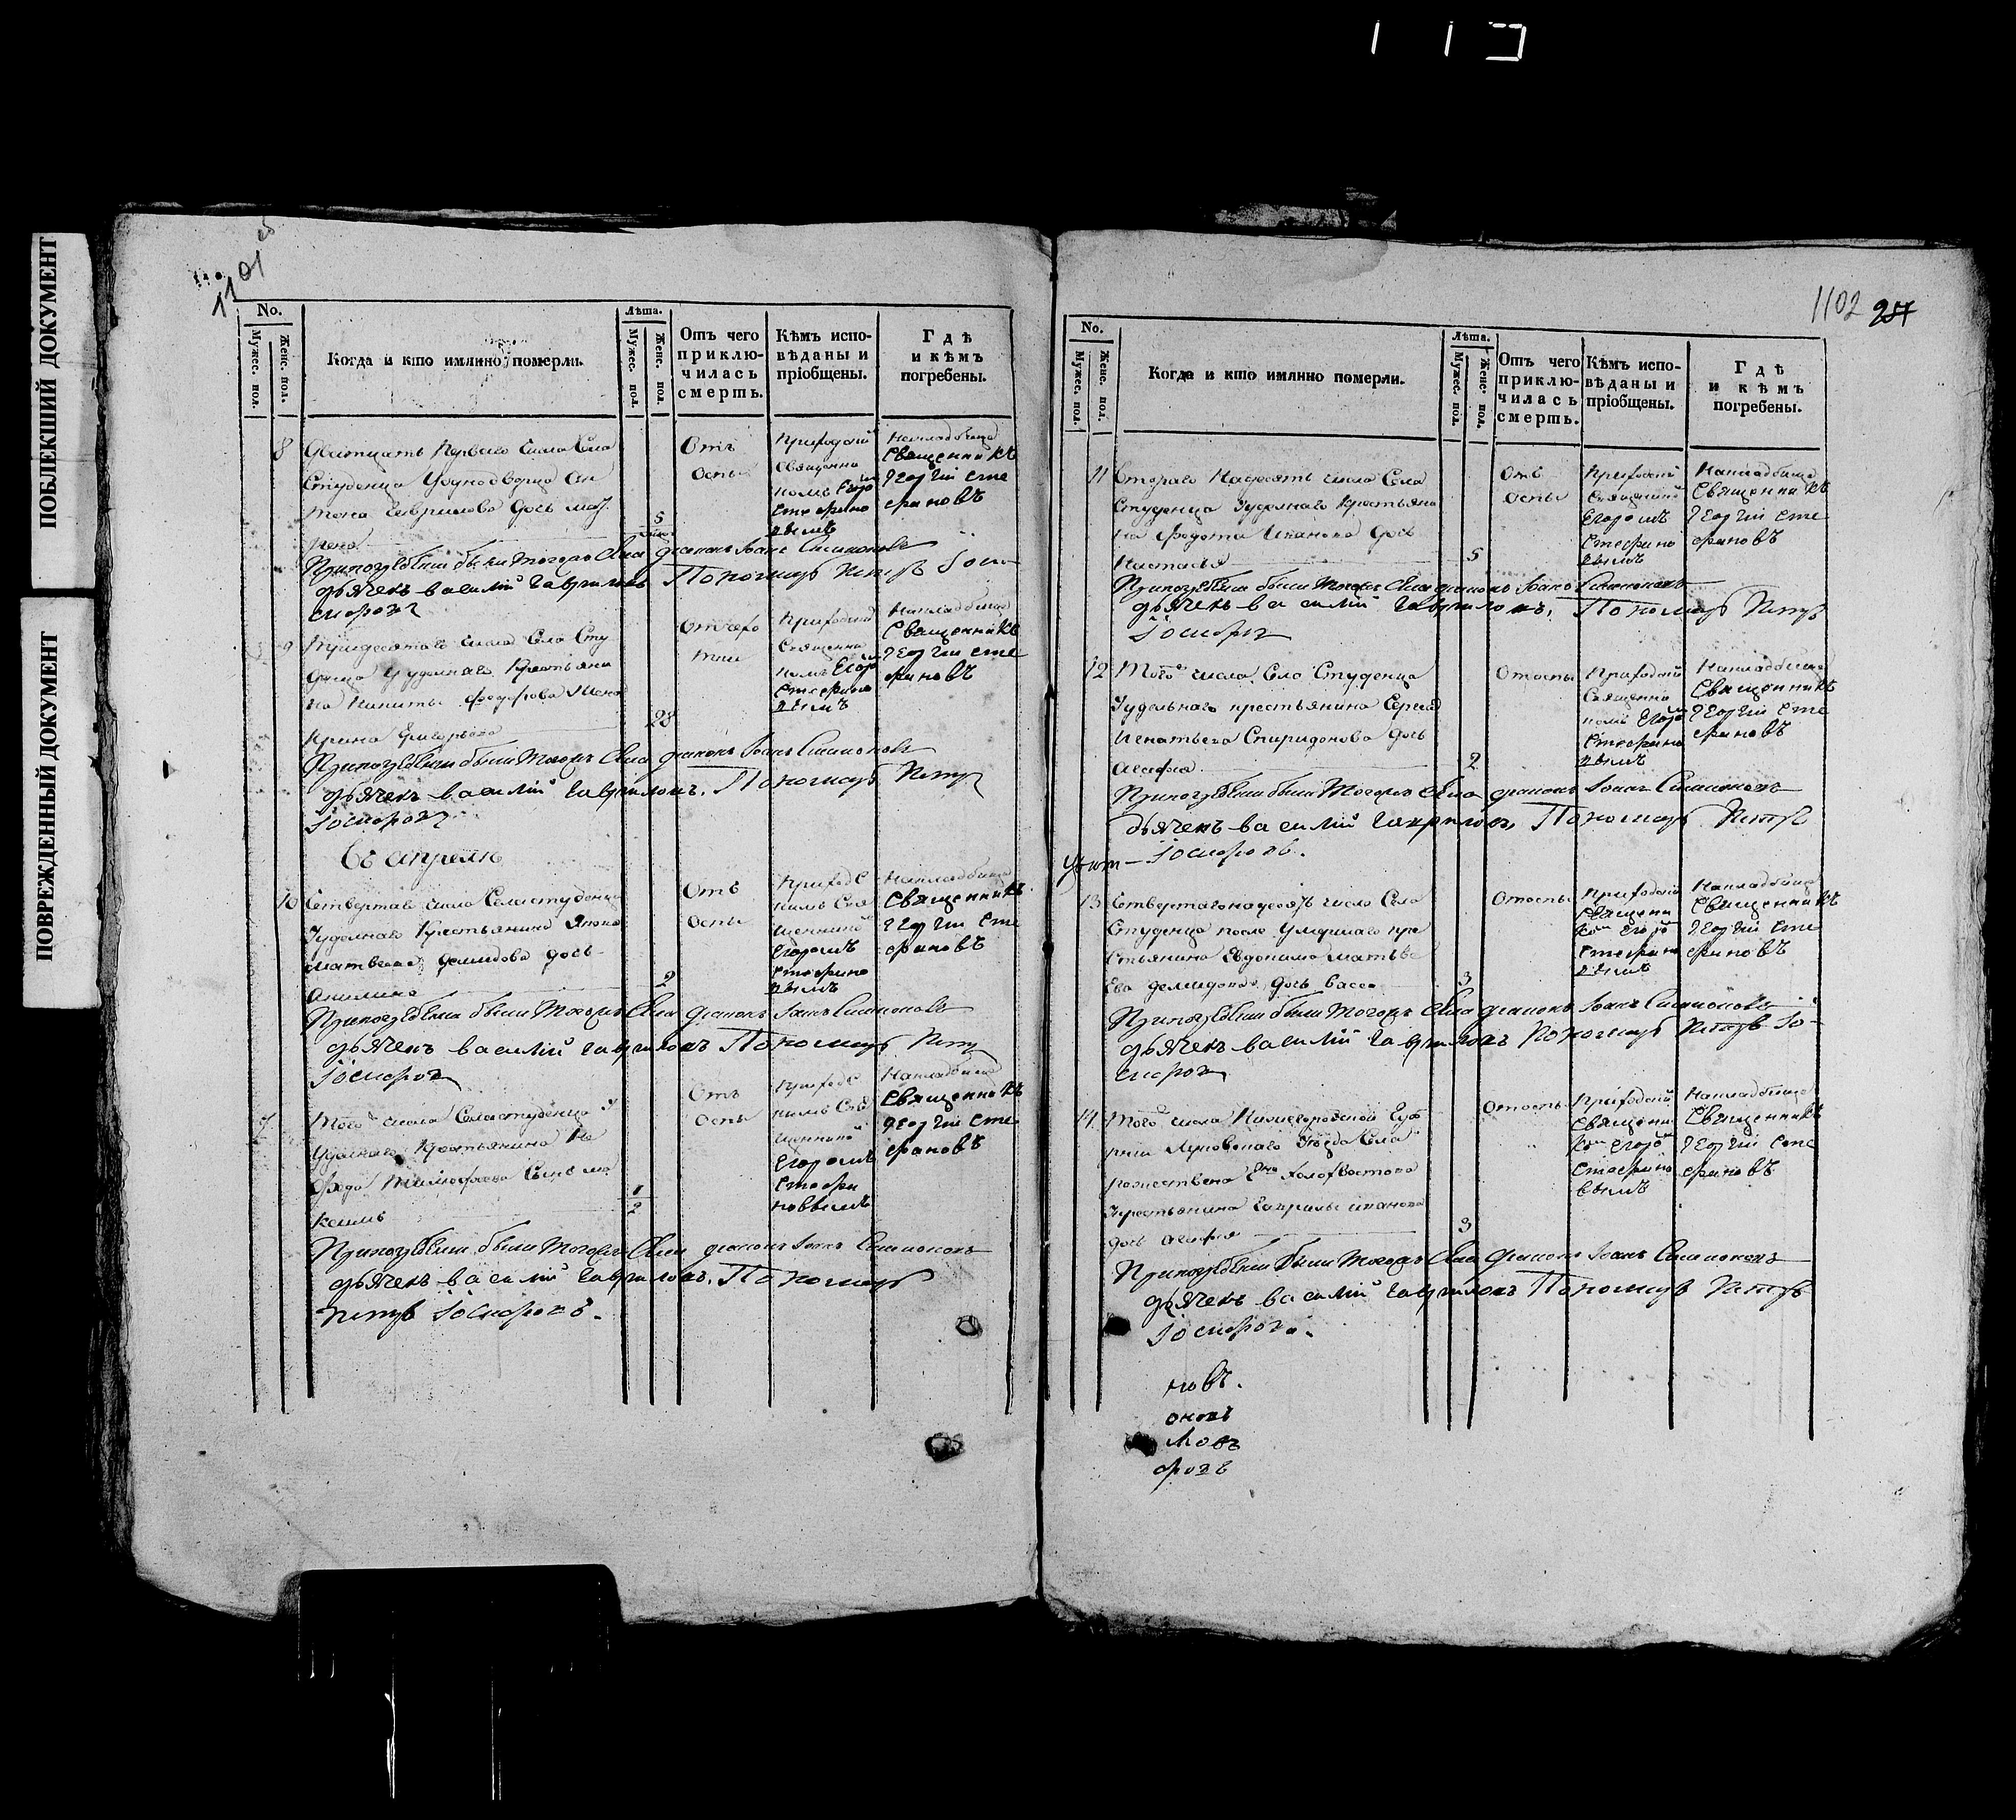 ПОБЛЕКШИЙ ДОКУМЕНТ
ПОВРЕЖДЕННЫЙ ДОКУМЕНТ
1101
No.
Мужес. пол.
Женс. пол.
Когда и кто имянно померли.
Лѣта.
Мужес. пол.
Женс. пол.
Отъ чего приклю-
чилась
смерть.
Кѣмъ испо-
вѣданы и
пріобщены.
Гдѣ
и кѣмъ
погребены.
8
Двятцать Перваго числа Села
Студенца
Гаврилова дочь
5
Отъ
оспы
Приходскимъ
Священно
комъ Егоромъ
Стефано
вымъ
На кладбище
Священникъ
Георгій Сте
фановъ
При погребении были тогожъ Села диаконъ Іоаннъ Симионовъ
дьячекъ василий гавриловъ Пономарь петръ Іоси
фовъ
9
Тридесятаго числа Села Сту
денца Удельнаго Крестьяни
на Никиты Федорова Жена
Ирина Григорьева
28
Приходским
Священно
комъ Егоромъ
Стефано
вымъ
На кладбище
Священникъ
Георгій Сте
фановъ
При погребении были тогожъ Села диаконъ Іоаннъ Симионовъ
дьячекъ василий гавриловъ. Пономарь Петръ
Іосифовъ
Въ апреле
10
Четвертаго числа Села студенца
Удельнаго Крестьянина
матвеева демидова дочь
Акилина
2
Отъ
Оспы
Приходс
кимъ Свя
щенникомъ
Егоромъ
Стефано
вымъ
На кладбище
Священникъ
Георгій Сте
фановъ
При погребении были тогожъ Села диаконъ Іоаннъ Симионовъ
дьячекъ василий гавриловъ Пономарь Петръ
Іосифовъ
7
Того числа Села студенца
Удельнаго Крестьянина
Тимофеева Сынъ ма
ксимъ
1/2
Отъ
Оспы
Приходс
кимъ Свя
щенникомъ
Егоромъ
Стефа
новымъ
На кладбище
Священникъ
Георгій Сте
фановъ
При погребении были тогожъ Села диаконъ Іоаннъ Симионовъ
дьячекъ василий гавриловъ. Пономарь
петръ Іосифовъ.
1102
No.
Мужес. пол.
Женс. пол.
Когда и кто имянно померли.
Лѣта.
Мужес. пол.
Женс. пол.
Отъ чего
приклю-
чилась
смерть.
Кѣмъ испо-
вѣданы и
пріобщены.
Гдѣ
и кѣмъ
погребены.
11
Втораго Надесять числа Села
Студенца Удельнаго Крестьяни
на Федота Иванова дочь
Настасья
5
Отъ
оспы
Приходским
Священник
Егоромъ
Стефано
вымъ
На кладбище
Священникъ
Георгій Сте
фановъ
При погребении были тогожъ Села диаконъ Іоаннъ Симионовъ
дьячекъ василий гавриловъ. Пономарь Петръ
Іосифовъ
12
Того числа Села Студенца
Удельнаго крестьянина Сергея
Игнатьева Спиридонова дочь
Агафья
2
От оспы
Приходским
Священно
комъ Егоромъ
Стефано
вымъ
На кладбище
Священникъ
Георгій Сте
фановъ
При погребении были тогожъ Села диаконъ Іоаннъ Симионовъ
дьячекъ василий гавриловъ, Пономарь Петръ
Іосифовъ.
13
Четвертагонадесять числа Села
Студенца после умершаго кре
стьянина Евдокима матьве
ева демидова дочь васса
3
От оспы
Приходским
Священни
ком Егором
Стефано
вымъ
На кладбище
Священникъ
Георгій Сте
фановъ
При погребении были тогожъ Села диаконъ Іоаннъ Симионовъ
дьячекъ василий гавриловъ Пономарь Петръ Іо-
сифовъ
14
Того числа Нижегородской Губ
рнии Уезда Села
рожествена
Крестьянина Гаврилы иванова
дочь агафья
3
От оспы
Приходским
Священни
ком Егором
Стефано
вымъ
На кладбище
Священникъ
Георгій Сте
фановъ
При погребении были тогожъ Села диаконъ Іоаннъ Симионовъ
дьячекъ василий гавриловъ Пономарь Петръ
Іосифовъ.
новъ.
оновъ
ловъ
фовъ